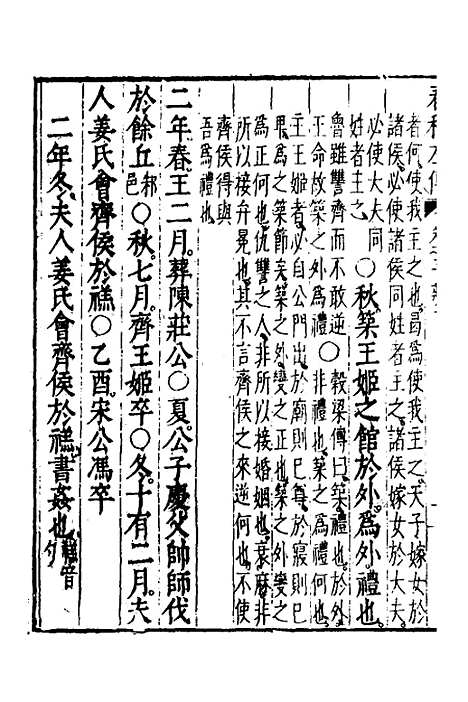 者何使我主之也曷爲使我主之天子嫁女於
諸侯必使諸侯同姓者主之諸侯嫁女於大夫
必使大夫同
姓者主之
○秋築王姬之館於外爲外禮也
魯雖讐齊而不敢逆
王命故築之外爲禮
○穀梁傳曰築禮也於外
非禮也築之爲禮何也
主王姬者必自公門出於廟則已尊於寢則已
卑爲之築節矣築之外變之正也築之外變之
爲正何也仇讐之人非所以接婚姻也衰麻非
所以接弁冕也其不言齊侯之來逆何也不使
齊侯得與
吾爲禮也
二年春王二月葬陳莊公○夏公子慶父帥師伐
於餘丘邾邑○秋七月齊王姬卒○冬十有二月夫
人姜氏會齊侯於禚○乙酉宋公馮卒
二年冬夫人姜氏會齊侯於禚書姦也禚音勺